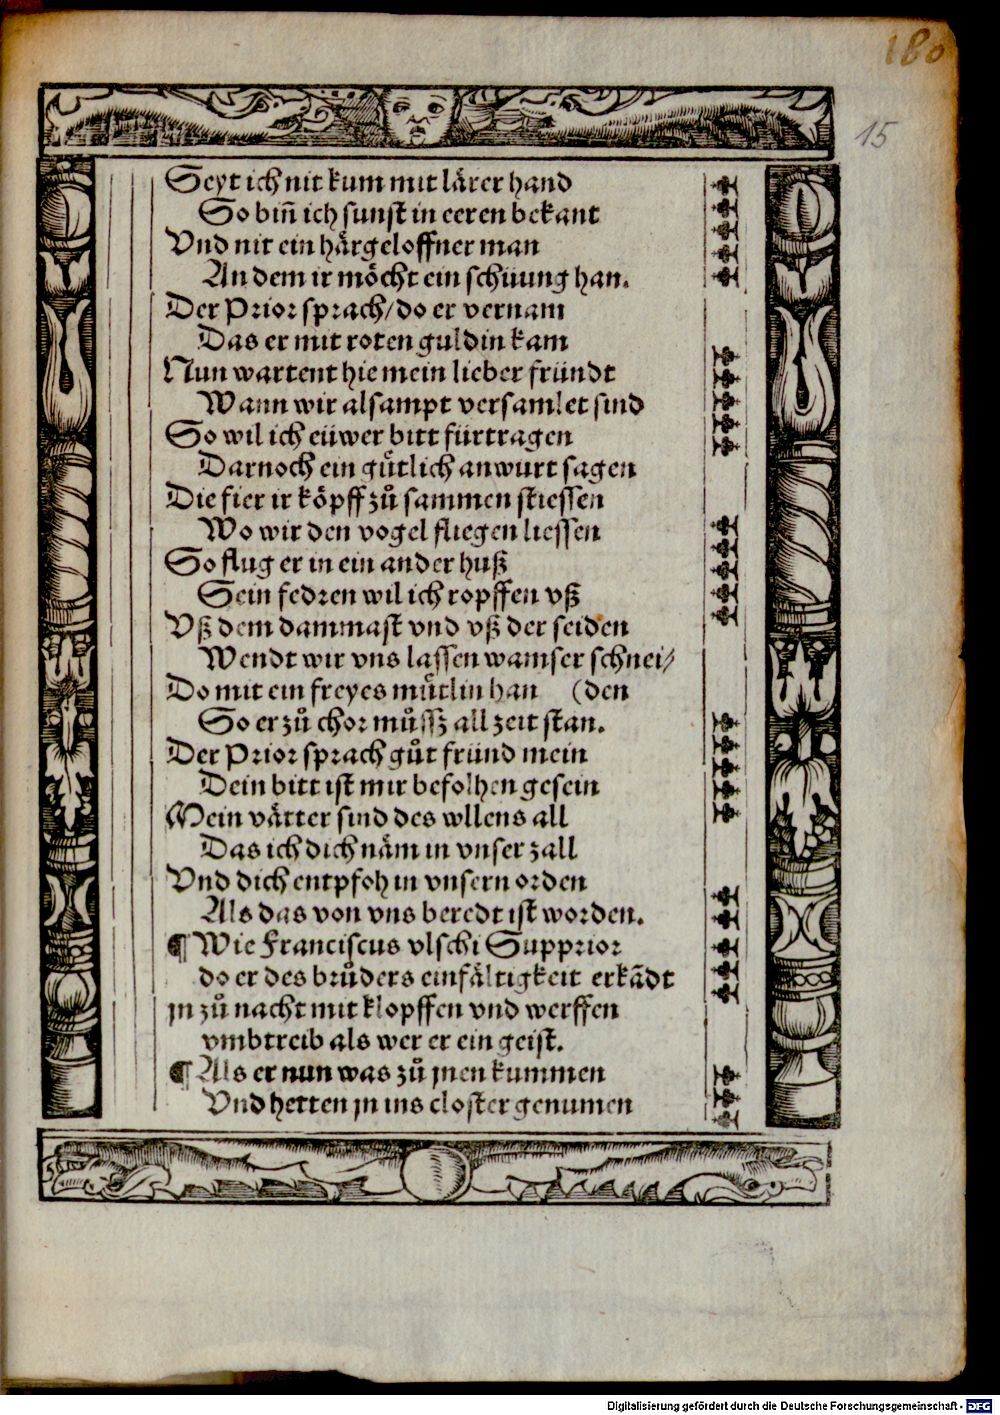 180
15
Seyt ich nit kum mit lärer hand
So biñ ich sunst in eeren bekant
Vnd nit ein härgeloffner man
An dem ir möcht ein schüung han.
Der Prior sprach/do er vernam
Das er mit roten guldin kam
Nun wartent hie mein lieber fründt
Wann wir alsampt versamlet sind
So wil ich eüwer bitt fürtragen
Darnoch ein gůtlich anwurt sagen
Die fier ir köpff zů sammen stiessen
Wo wir den vogel fliegen liessen
So flug er in ein ander huß
Sein fedren wil ich ropffen vß
Vß dem dammast vnd vß der seiden
Wendt wir vns lassen wamser schnei/
Do mit ein freyes můtlin han (den
So er zů chor můssz all zeit stan.
Der Prior sprach gůt fründ mein
Dein bitt ist mir befolhen gesein
Mein vätter sind des wllens all
Das ich dich näm in vnser zall
Vnd dich entpfoh in vnsern orden
Als das von vns beredt ist worden.
¶ Wie Franciscus vlschi Supprior
do er des brůders einfältigkeit erkãdt
jn zů nacht mit klopffen vnd werffen
vmbtreib als wer er ein geist.
¶ Als er nun was zů jnen kummen
Vnd hetten jn ins closter genumen
Digitalisierung gefördert durch die Deutsche Forschungsgemeinschaft - DFG